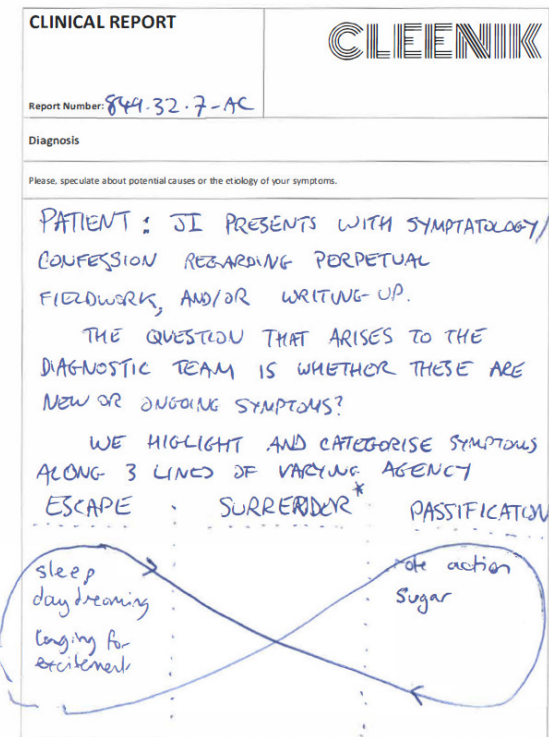 CLINICAL REPORT
CLEENIK
Report Number: 849.32.7-AC
Diagnosis
Please, speculate about potential causes or the etiology of your symptoms.
PATIENT : JI PRESENTS WITH SYMPTATOLOGY/
CONFESSION REGARDING PERPETUAL
FIELDWORK, AND/OR WRITING-UP.
THE QUESTION THAT ARISES TO THE
DIAGNOSTIC TEAM IS WHETHER THESE ARE
NEW OR ONGOING SYMPTOMS?
WE HIGLIGHT AND CATEGORISE SYMPTOMS
ALONG 3 LINES OF VARYING AGENCY
ESCAPE SURRENDOR* PASSIFICATION
sleep rote action
daydreaming Sugar
longing for
excitement